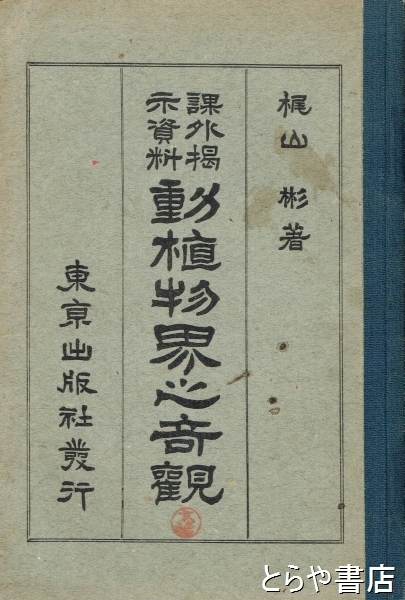 梶山彬著
課外揭
示資料
動植物界之奇觀
東京出版社發行
とらや書店